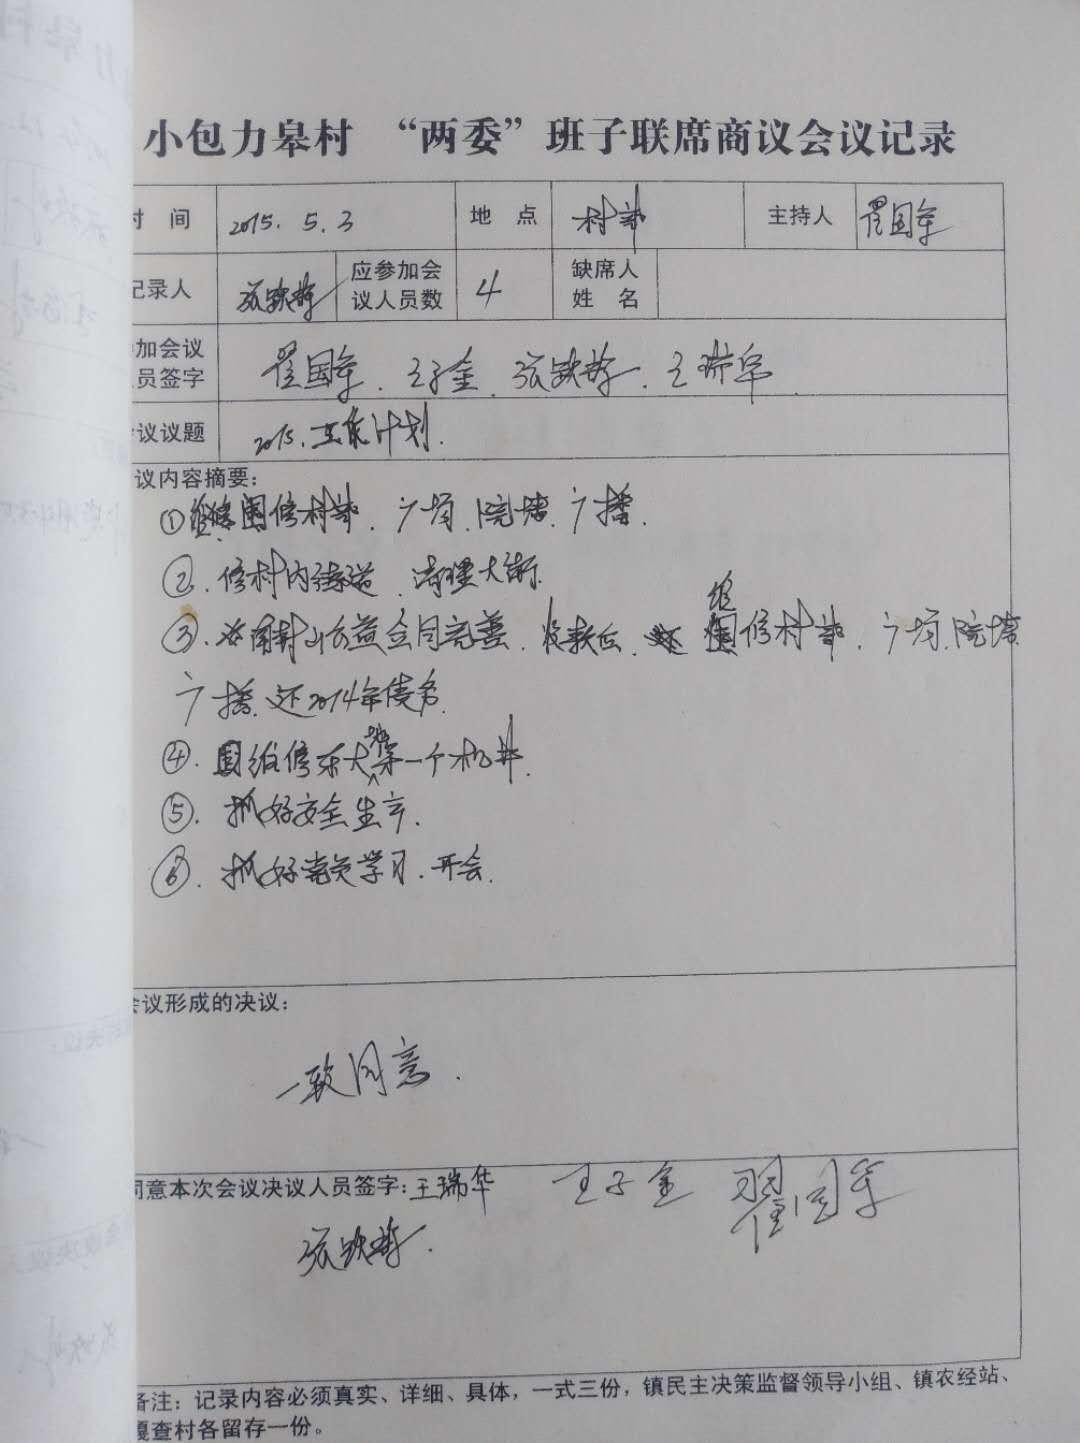 小包力皋村 “两委”班子联席商议会议记录
时 间 2015. 5. 3 地 点 村部 主持人 翟国军
记录人 张铁 应参加会议人员数 4 缺席人姓 名
加会议
员签字 翟国军. 王子金. 张铁. 王瑞华
议议题 2015. 工作计划.
议内容摘要:
① 修村部. 广场. 院墙. 广播.
②. 修村内街道 清理大街.
③. 合同完善. 收款后. 维修村部. 广场. 院墙
广播. 还2014年债务.
④. 维修东大地第一个机井.
⑤. 抓好安全生产.
⑥. 抓好党员学习. 开会.
会议形成的决议:
一致同意.
同意本次会议决议人员签字: 王瑞华 王子金 翟国军
张铁
备注: 记录内容必须真实、详细、具体, 一式三份, 镇民主决策监督领导小组、镇农经站、
嘎查村各留存一份。